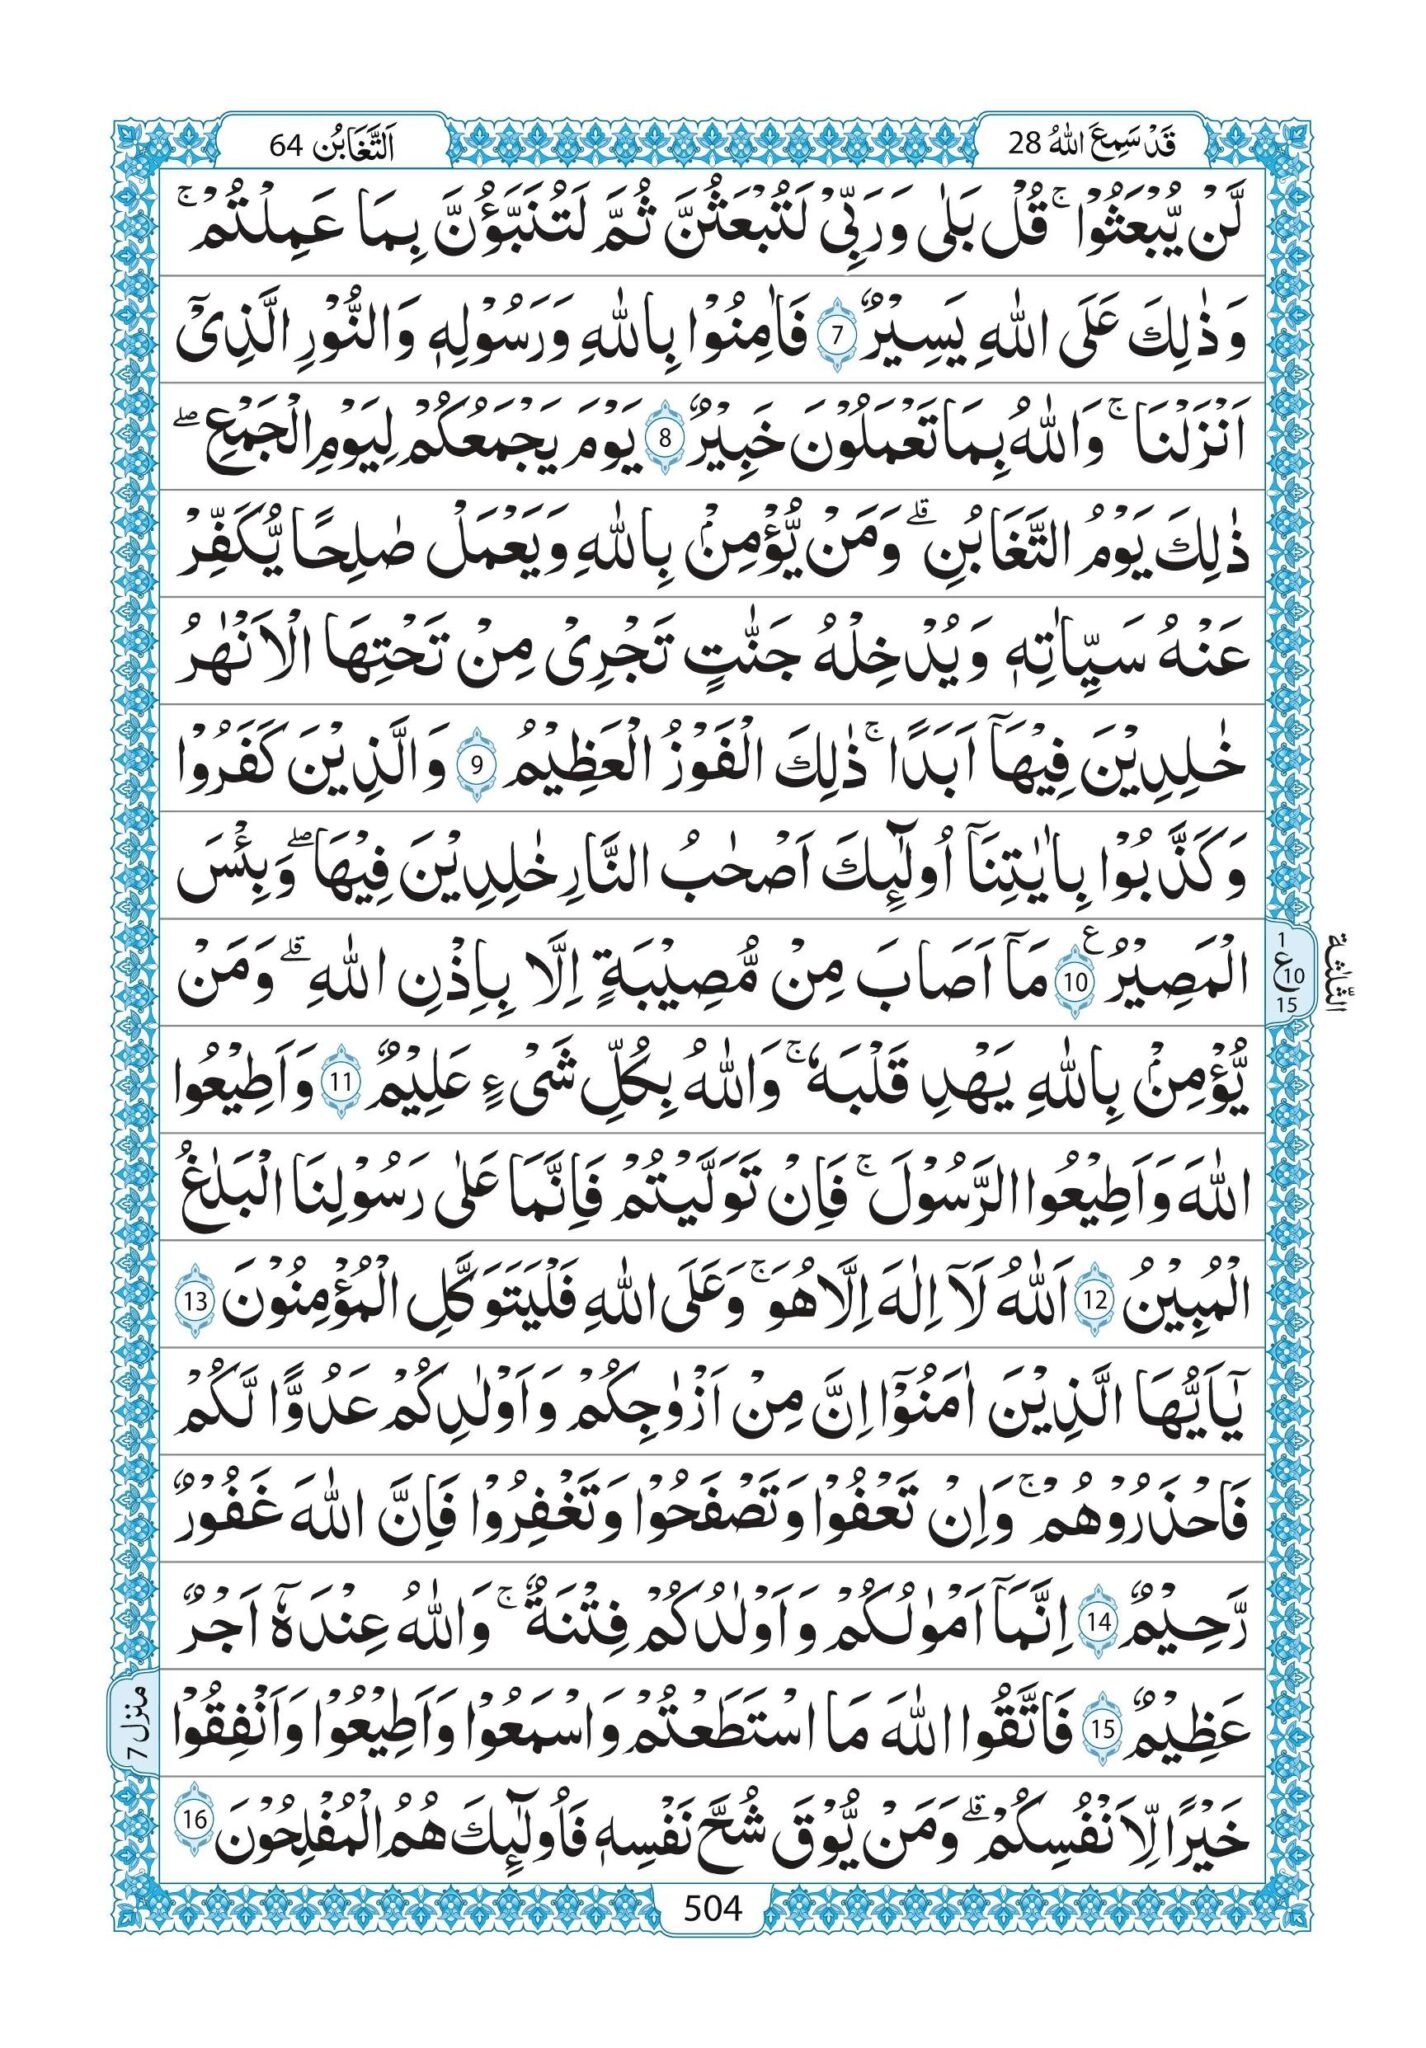 قَدْ سَمِعَ اللّٰهُ 28
اَلتَّغَابُن 64
لَّنْ يُّبْعَثُوْا ۚ قُلْ بَلٰى وَرَبِّيْ لَتُبْعَثُنَّ ثُمَّ لَتُنَبَّؤُنَّ بِمَا عَمِلْتُمْ ۚ
وَذٰلِكَ عَلَى اللّٰهِ يَسِيْرٌ 7 فَاٰمِنُوْا بِاللّٰهِ وَرَسُوْلِهٖ وَالنُّوْرِ الَّذِيْٓ
اَنْزَلْنَا ۚ وَاللّٰهُ بِمَا تَعْمَلُوْنَ خَبِيْرٌ 8 يَوْمَ يَجْمَعُكُمْ لِيَوْمِ الْجَمْعِ ۖ
ذٰلِكَ يَوْمُ التَّغَابُنِ ۗ وَمَنْ يُّؤْمِنْۢ بِاللّٰهِ وَيَعْمَلْ صٰلِحًا يُّكَفِّرْ
عَنْهُ سَيِّاٰتِهٖ وَيُدْخِلْهُ جَنّٰتٍ تَجْرِيْ مِنْ تَحْتِهَا الْاَنْهٰرُ
خٰلِدِيْنَ فِيْهَآ اَبَدًا ۚ ذٰلِكَ الْفَوْزُ الْعَظِيْمُ 9 وَالَّذِيْنَ كَفَرُوْا
وَكَذَّبُوْا بِاٰيٰتِنَآ اُولٰٓئِكَ اَصْحٰبُ النَّارِ خٰلِدِيْنَ فِيْهَا ۖ وَبِئْسَ
الْمَصِيْرُ 10 ع مَآ اَصَابَ مِنْ مُّصِيْبَةٍ اِلَّا بِاِذْنِ اللّٰهِ ۗ وَمَنْ
1 ع 10 15
الثلٰثة
يُّؤْمِنْۢ بِاللّٰهِ يَهْدِ قَلْبَهٗ ۚ وَاللّٰهُ بِكُلِّ شَيْءٍ عَلِيْمٌ 11 وَاَطِيْعُوا
اللّٰهَ وَاَطِيْعُوا الرَّسُوْلَ ۚ فَاِنْ تَوَلَّيْتُمْ فَاِنَّمَا عَلٰى رَسُوْلِنَا الْبَلٰغُ
الْمُبِيْنُ 12 اَللّٰهُ لَآ اِلٰهَ اِلَّا هُوَ ۚ وَعَلَى اللّٰهِ فَلْيَتَوَكَّلِ الْمُؤْمِنُوْنَ 13
يٰٓاَيُّهَا الَّذِيْنَ اٰمَنُوْٓا اِنَّ مِنْ اَزْوٰجِكُمْ وَاَوْلٰدِكُمْ عَدُوًّا لَّكُمْ
فَاحْذَرُوْهُمْ ۚ وَاِنْ تَعْفُوْا وَتَصْفَحُوْا وَتَغْفِرُوْا فَاِنَّ اللّٰهَ غَفُوْرٌ
رَّحِيْمٌ 14 اِنَّمَآ اَمْوٰلُكُمْ وَاَوْلٰدُكُمْ فِتْنَةٌ ۚ وَاللّٰهُ عِنْدَهٗٓ اَجْرٌ
عَظِيْمٌ 15 فَاتَّقُوا اللّٰهَ مَا اسْتَطَعْتُمْ وَاسْمَعُوْا وَاَطِيْعُوْا وَاَنْفِقُوْا
منزل 7
خَيْرًا لِّاَنْفُسِكُمْ ۗ وَمَنْ يُّوْقَ شُحَّ نَفْسِهٖ فَاُولٰٓئِكَ هُمُ الْمُفْلِحُوْنَ 16
504